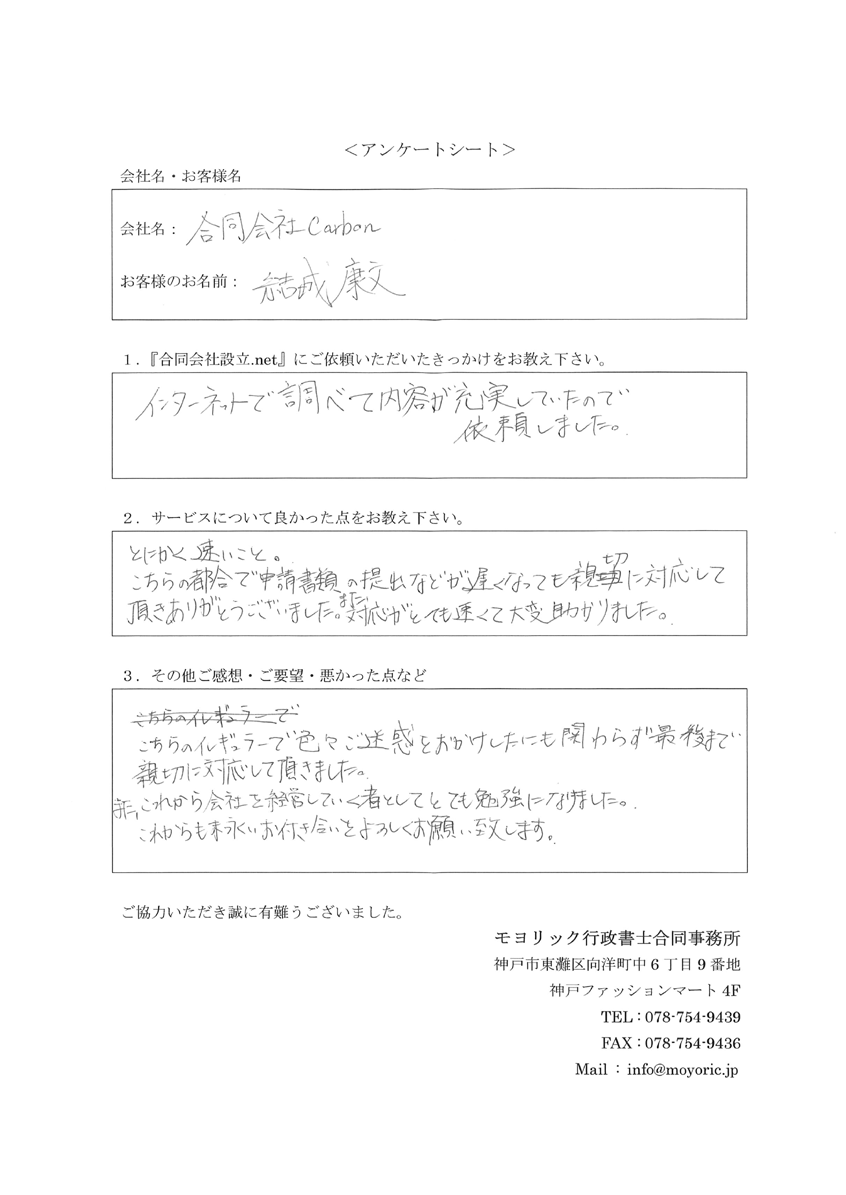 ＜アンケートシート＞
会社名・お客様名
会社名： 合同会社Carbon
お客様のお名前： 結城康文
１.『合同会社設立.net』にご依頼いただいたきっかけをお教え下さい。
インターネットで調べて内容が充実していたので
依頼しました。
２．サービスについて良かった点をお教え下さい。
とにかく速いこと。
こちらの都合で申請書類の提出などが遅くなっても親切に対応して
頂きありがとうございました。また対応がとても速くて大変助かりました。
３．その他ご感想・ご要望・悪かった点など
こちらのイレギュラーで
こちらのイレギュラーで色々ご迷惑をおかけしたにも関わらず最後まで
親切に対応して頂きました。
また、これから会社を経営していく者としてとても勉強になりました。
これからも末永いお付き合いをよろしくお願い致します。
ご協力いただき誠に有難うございました。
モヨリック行政書士合同事務所
神戸市東灘区向洋町中６丁目９番地
神戸ファッションマート 4F
TEL：078-754-9439
FAX：078-754-9436
Mail ： info@moyoric.jp